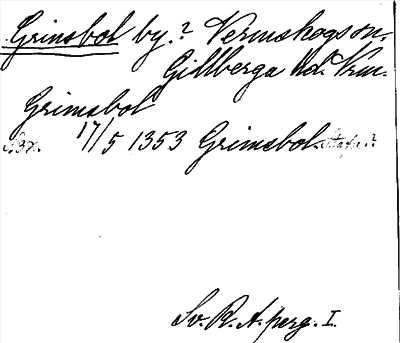 Grinsbol by.? Vermskogs sn.
Gillberga hd. Vrm.
Grimsbol
17/5 1353 Grimsbol
Sv. R. A. perg. I.